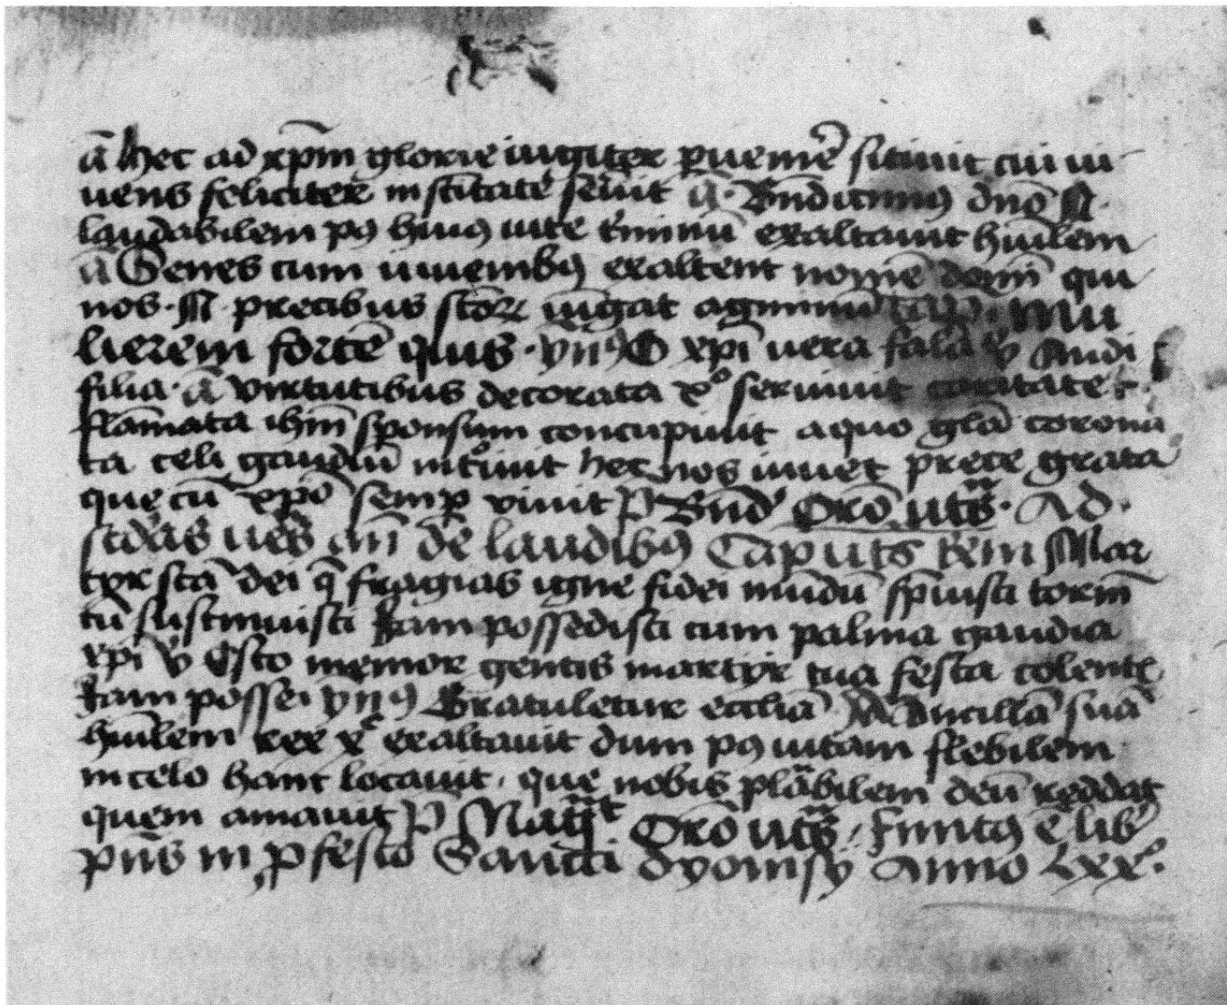 ā hec ad xp̄m glorie iugiter puenire sitiuit cui ui
uens feliciter in sc̄itate seruit ā. Bn̄dicimus dn̄o N.
laudabilem pꝯ huiꝯ uite t̄minū exaltauit hūilem
ā Senes cum iuuenibꝯ exaltent nomē domī qui
nos .N. precibus sc̄oꝝ iūgat agminū cap. Mu
lierem fortē quis. ẏn̄ꝯ O xp̄i uera ℣ Audi
filia. ā virtutibus decorata x̊ seruiuit caritate
flāmata ih̄m sponsum concupiuit a quo gl̄a corona
ta celi gaudiū int̊iuit hec nos iuuet prece grata
que cū xp̄o semp viuit P̄ Bn̄d Or̄o ut s̄. Ad
sc̄das ues̄ an̄ de laudibꝯ Cap ut s̄ Mar
tyr sc̄a dei q̄ flagias igne fidei mūdū sp̄uisti torm̄
tū sustinuisti Iam possedisti cum palma gaudia
xp̄i ℣ Esto memor gentis martyr tua festa colent̄
Iam possei ẏn̄ꝯ Gratuletur eccl̄ia Ad Ancillā suā
hūilem rex x̊ exaltauit dum pꝯ uitam flebilem
in celo hanc locauit. que nobis plābilem deū reddat
quem amauit P̄ Mag̅t Or̄o ut s̄. Finitꝯ ē lib̄
pn̄s in pfesto Sancti dyonisy Anno Lxx̊.